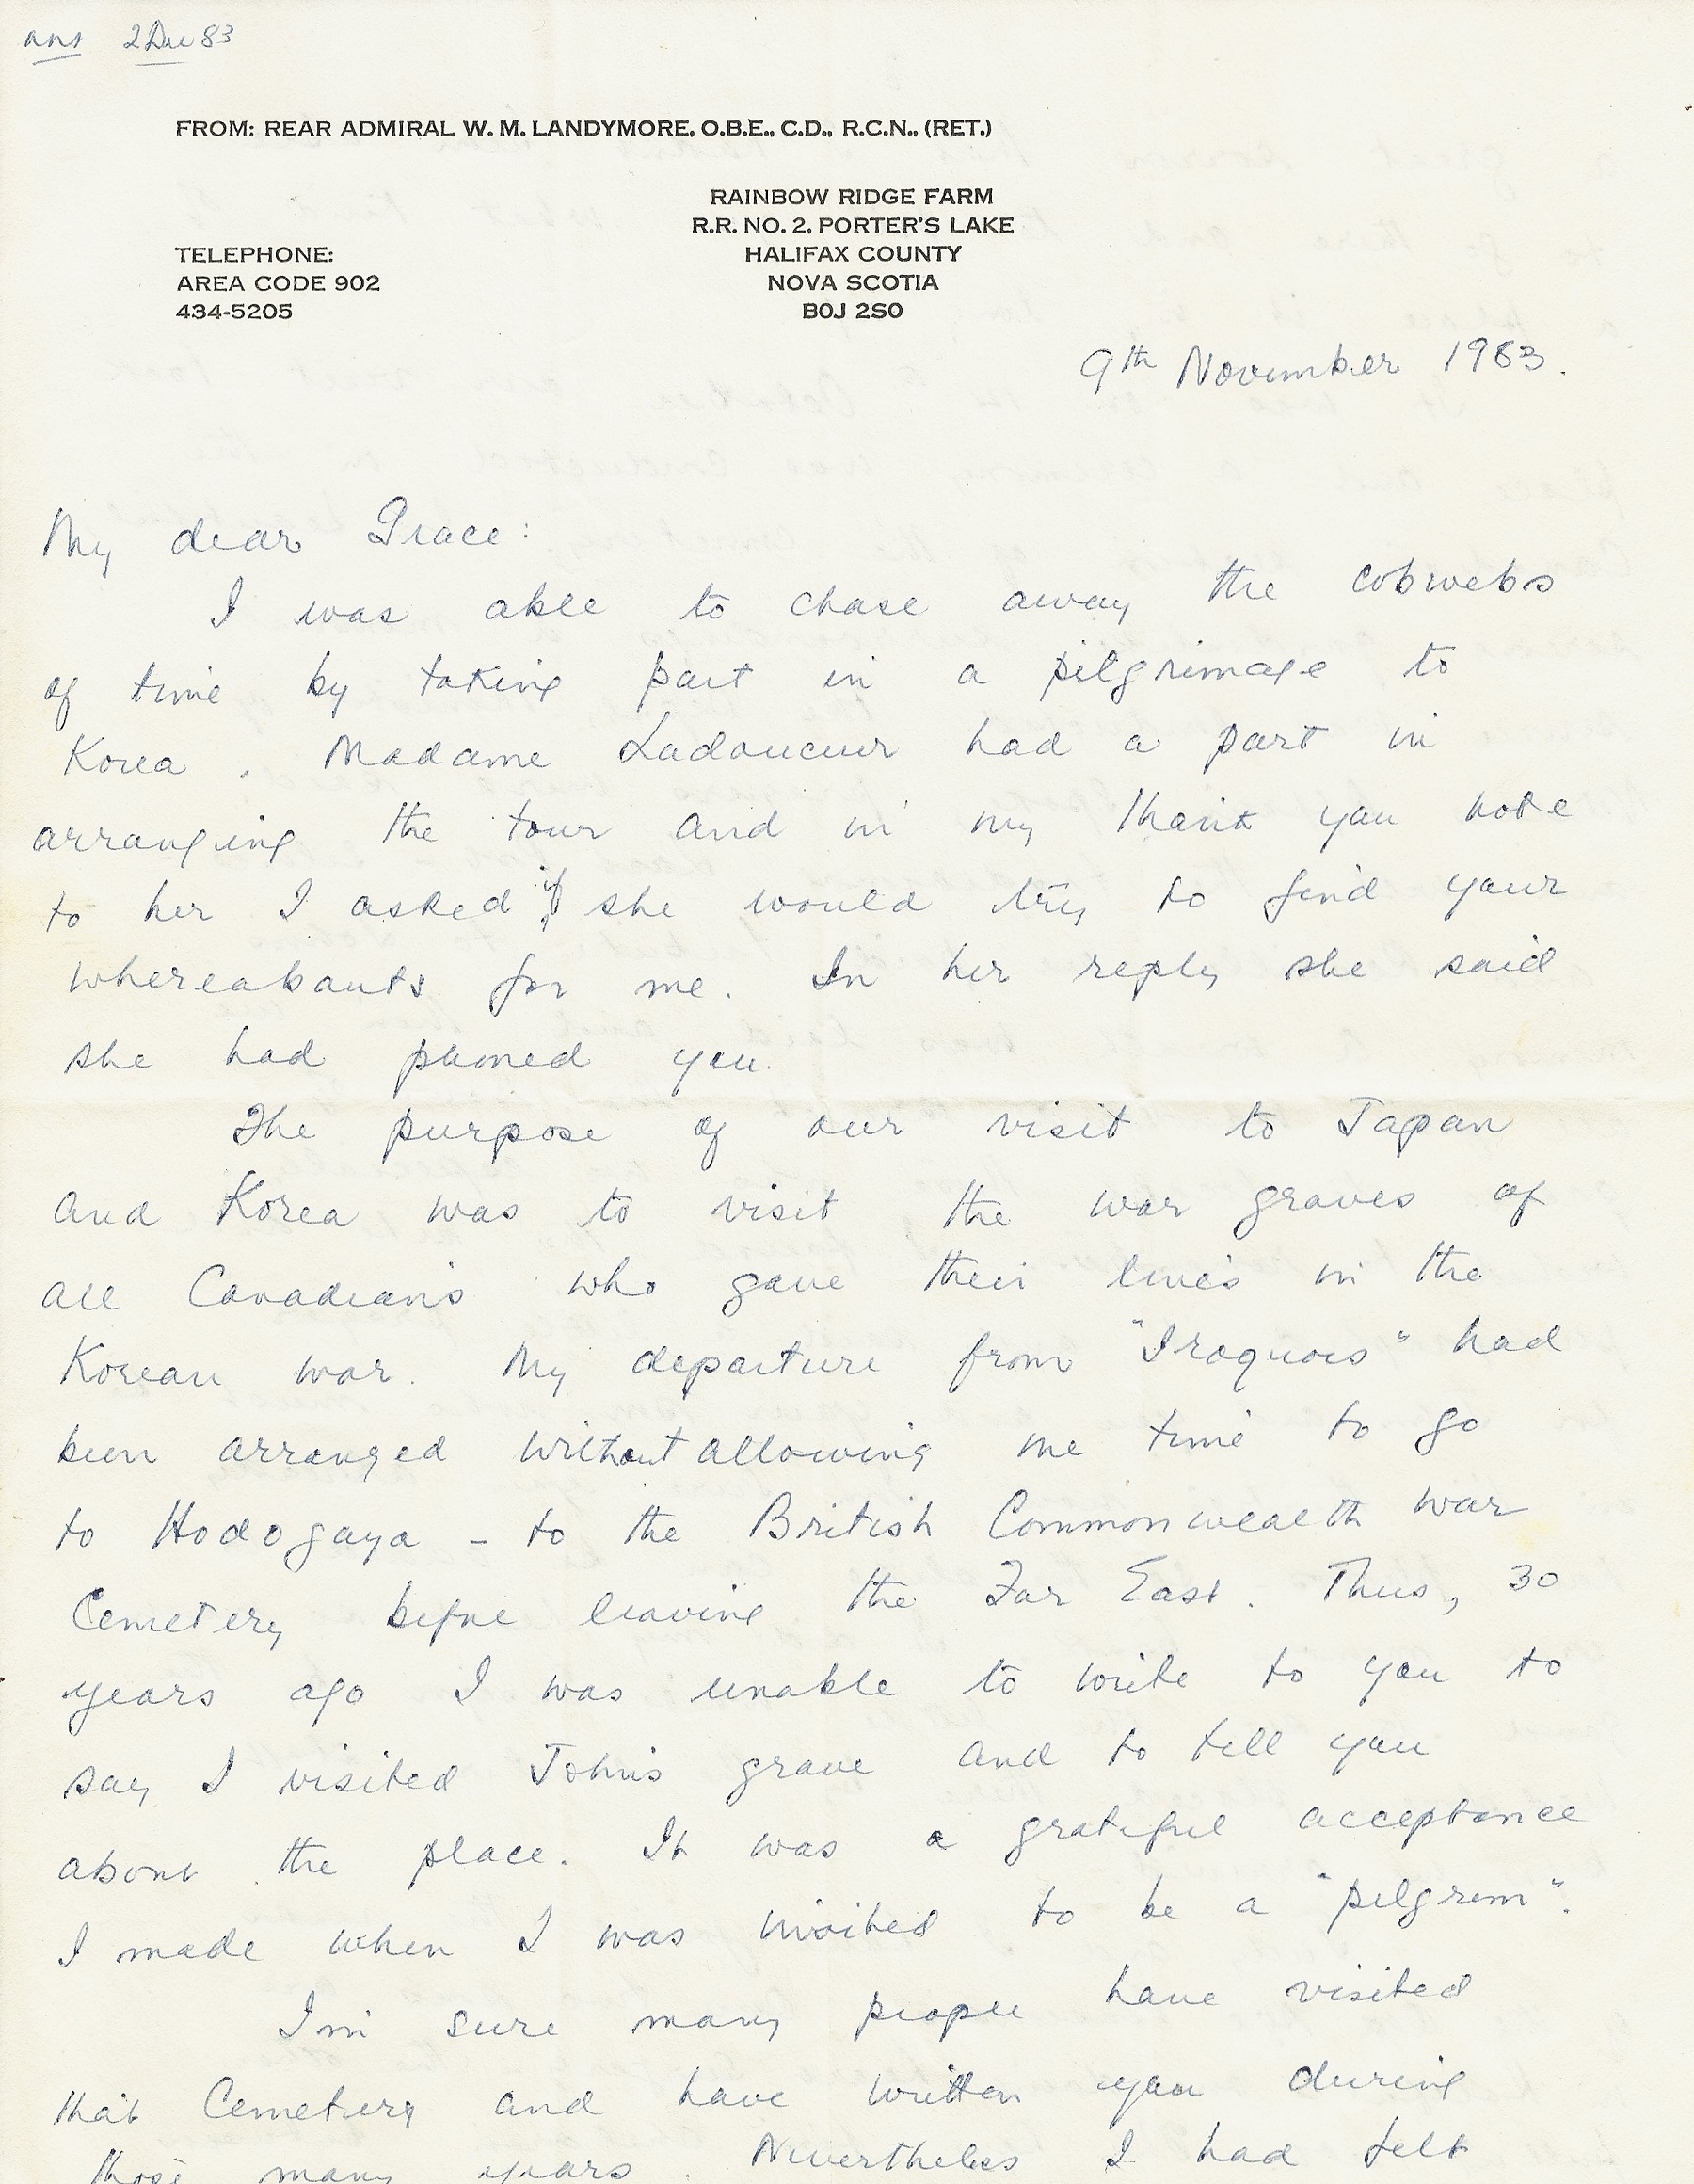 ans 2 Dec 83
FROM: REAR ADMIRAL W. M. LANDYMORE, O.B.E., C.D., R.C.N., (RET.)
RAINBOW RIDGE FARM
R.R. NO. 2, PORTER'S LAKE
TELEPHONE: HALIFAX COUNTY
AREA CODE 902 NOVA SCOTIA
434-5205 B0J 2S0
9th November 1983.
My dear Grace:
I was able to chase away the cobwebs
of time by taking part in a pilgrimage to
Korea. Madame Ladouceur had a part in
arranging the tour and in my thank you note
to her I asked if she would try to find your
whereabouts for me. In her reply she said
she had phoned you.
The purpose of our visit to Japan
and Korea was to visit the war graves of
all Canadians who gave their lives in the
Korean war. My departure from "Iroquois" had
been arranged without allowing me time to go
to Hodogaya - to the British Commonwealth War
Cemetery before leaving the Far East. Thus, 30
years ago I was unable to write to you to
say I visited John's grave and to tell you
about the place. It was a grateful acceptance
I made when I was invited to be a "pilgrim".
I'm sure many people have visited
that Cemetery and have written you during
those many years. Nevertheless I had felt